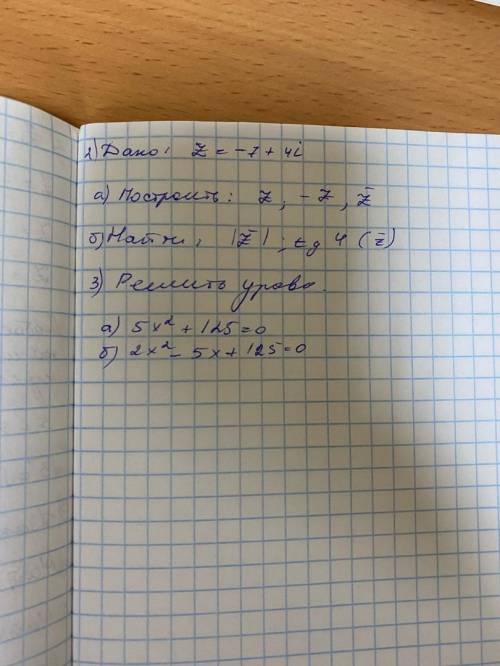 2) Дано: z = -7 + 4i
а) Построить: z, -z, z̄
б) Найти: |z̄|; tg φ (z̄)
3) Решить уравн.
а) 5x² + 125 = 0
б) 2x² - 5x + 125 = 0